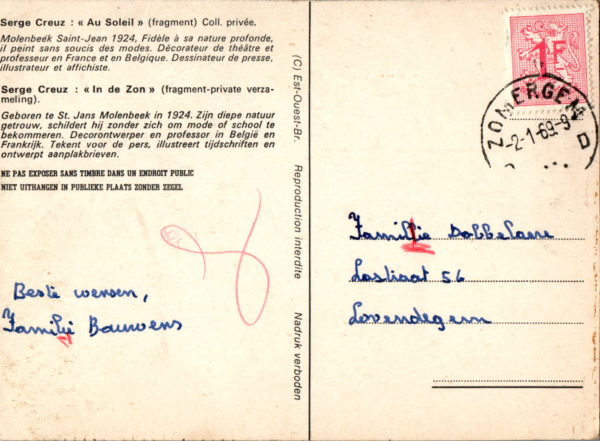 Serge Creuz : « Au Soleil » (fragment) Coll. privée.
Molenbeék Saint-Jean 1924, Fidèle à sa nature profonde,
il peint sans soucis des modes. Décorateur de théâtre et
professeur en France et en Belgique. Dessinateur de presse,
illustrateur et affichiste.
Serge Creuz : « In de Zon » (fragment-private verza-
meling).
Geboren te St. Jans Molenbeek in 1924. Zijn diepe natuur
getrouw, schildert hij zonder zich om mode of school te
bekommeren. Decorontwerper en professor in België en
Frankrijk. Tekent voor de pers, illustreert tijdschriften en
ontwerpt aanplakbrieven.
NE PAS EXPOSER SANS TIMBRE DANS UN ENDROIT PUBLIC
NIET UITHANGEN IN PUBLIEKE PLAATS ZONDER ZEGEL
Beste wensen,
Familie Bauwens
(C) Est-Ouest-Br. Reproduction interdite Nadruk verboden
1F
ZOMERGEM
-2-1-69-9
D
Familie Dobbelaere
Lostraat 56
Lovendegem